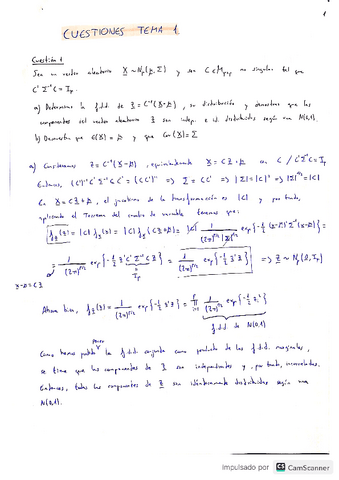 1
CUESTIONES TEMA 1
Cuestión 1
Sea un vector aleatorio X ~ Np(μ, Σ) y sea C ∈ Mp×p no singular tal que
C' Σ⁻¹ C = Ip.
a) Determina la f.d.d. de Z = C⁻¹(X-μ), su distribución y demuestra que las
componentes del vector aleatorio Z son indep. e id. distribuidas según una N(0,1).
b) Demuestra que E(X) = μ y que Cov(X) = Σ
a) Consideramos Z = C⁻¹(X-μ), equivalentemente X = CZ + μ con C / C' Σ⁻¹ C = Ip
Entonces, ⇒ Σ = CC' ⇒ |Σ| = |C|² ⇒ |Σ|^½ = |C|
Como X = CZ + μ, el jacobiano de la transformación es |C| y por tanto,
aplicando el Teorema del cambio de variable tenemos que:
X-μ = CZ
⇒ Z ~ Np(0, Ip)
Ahora bien,
f.d.d. de N(0,1)
Como hemos podido poner la f.d.d. conjunta como producto de las f.d.d. marginales,
se tiene que las componentes de Z son independientes y, por tanto, incorreladas.
Entonces, todas las componentes de Z son idénticamente distribuidas según una
N(0,1).
Impulsado por CS CamScanner